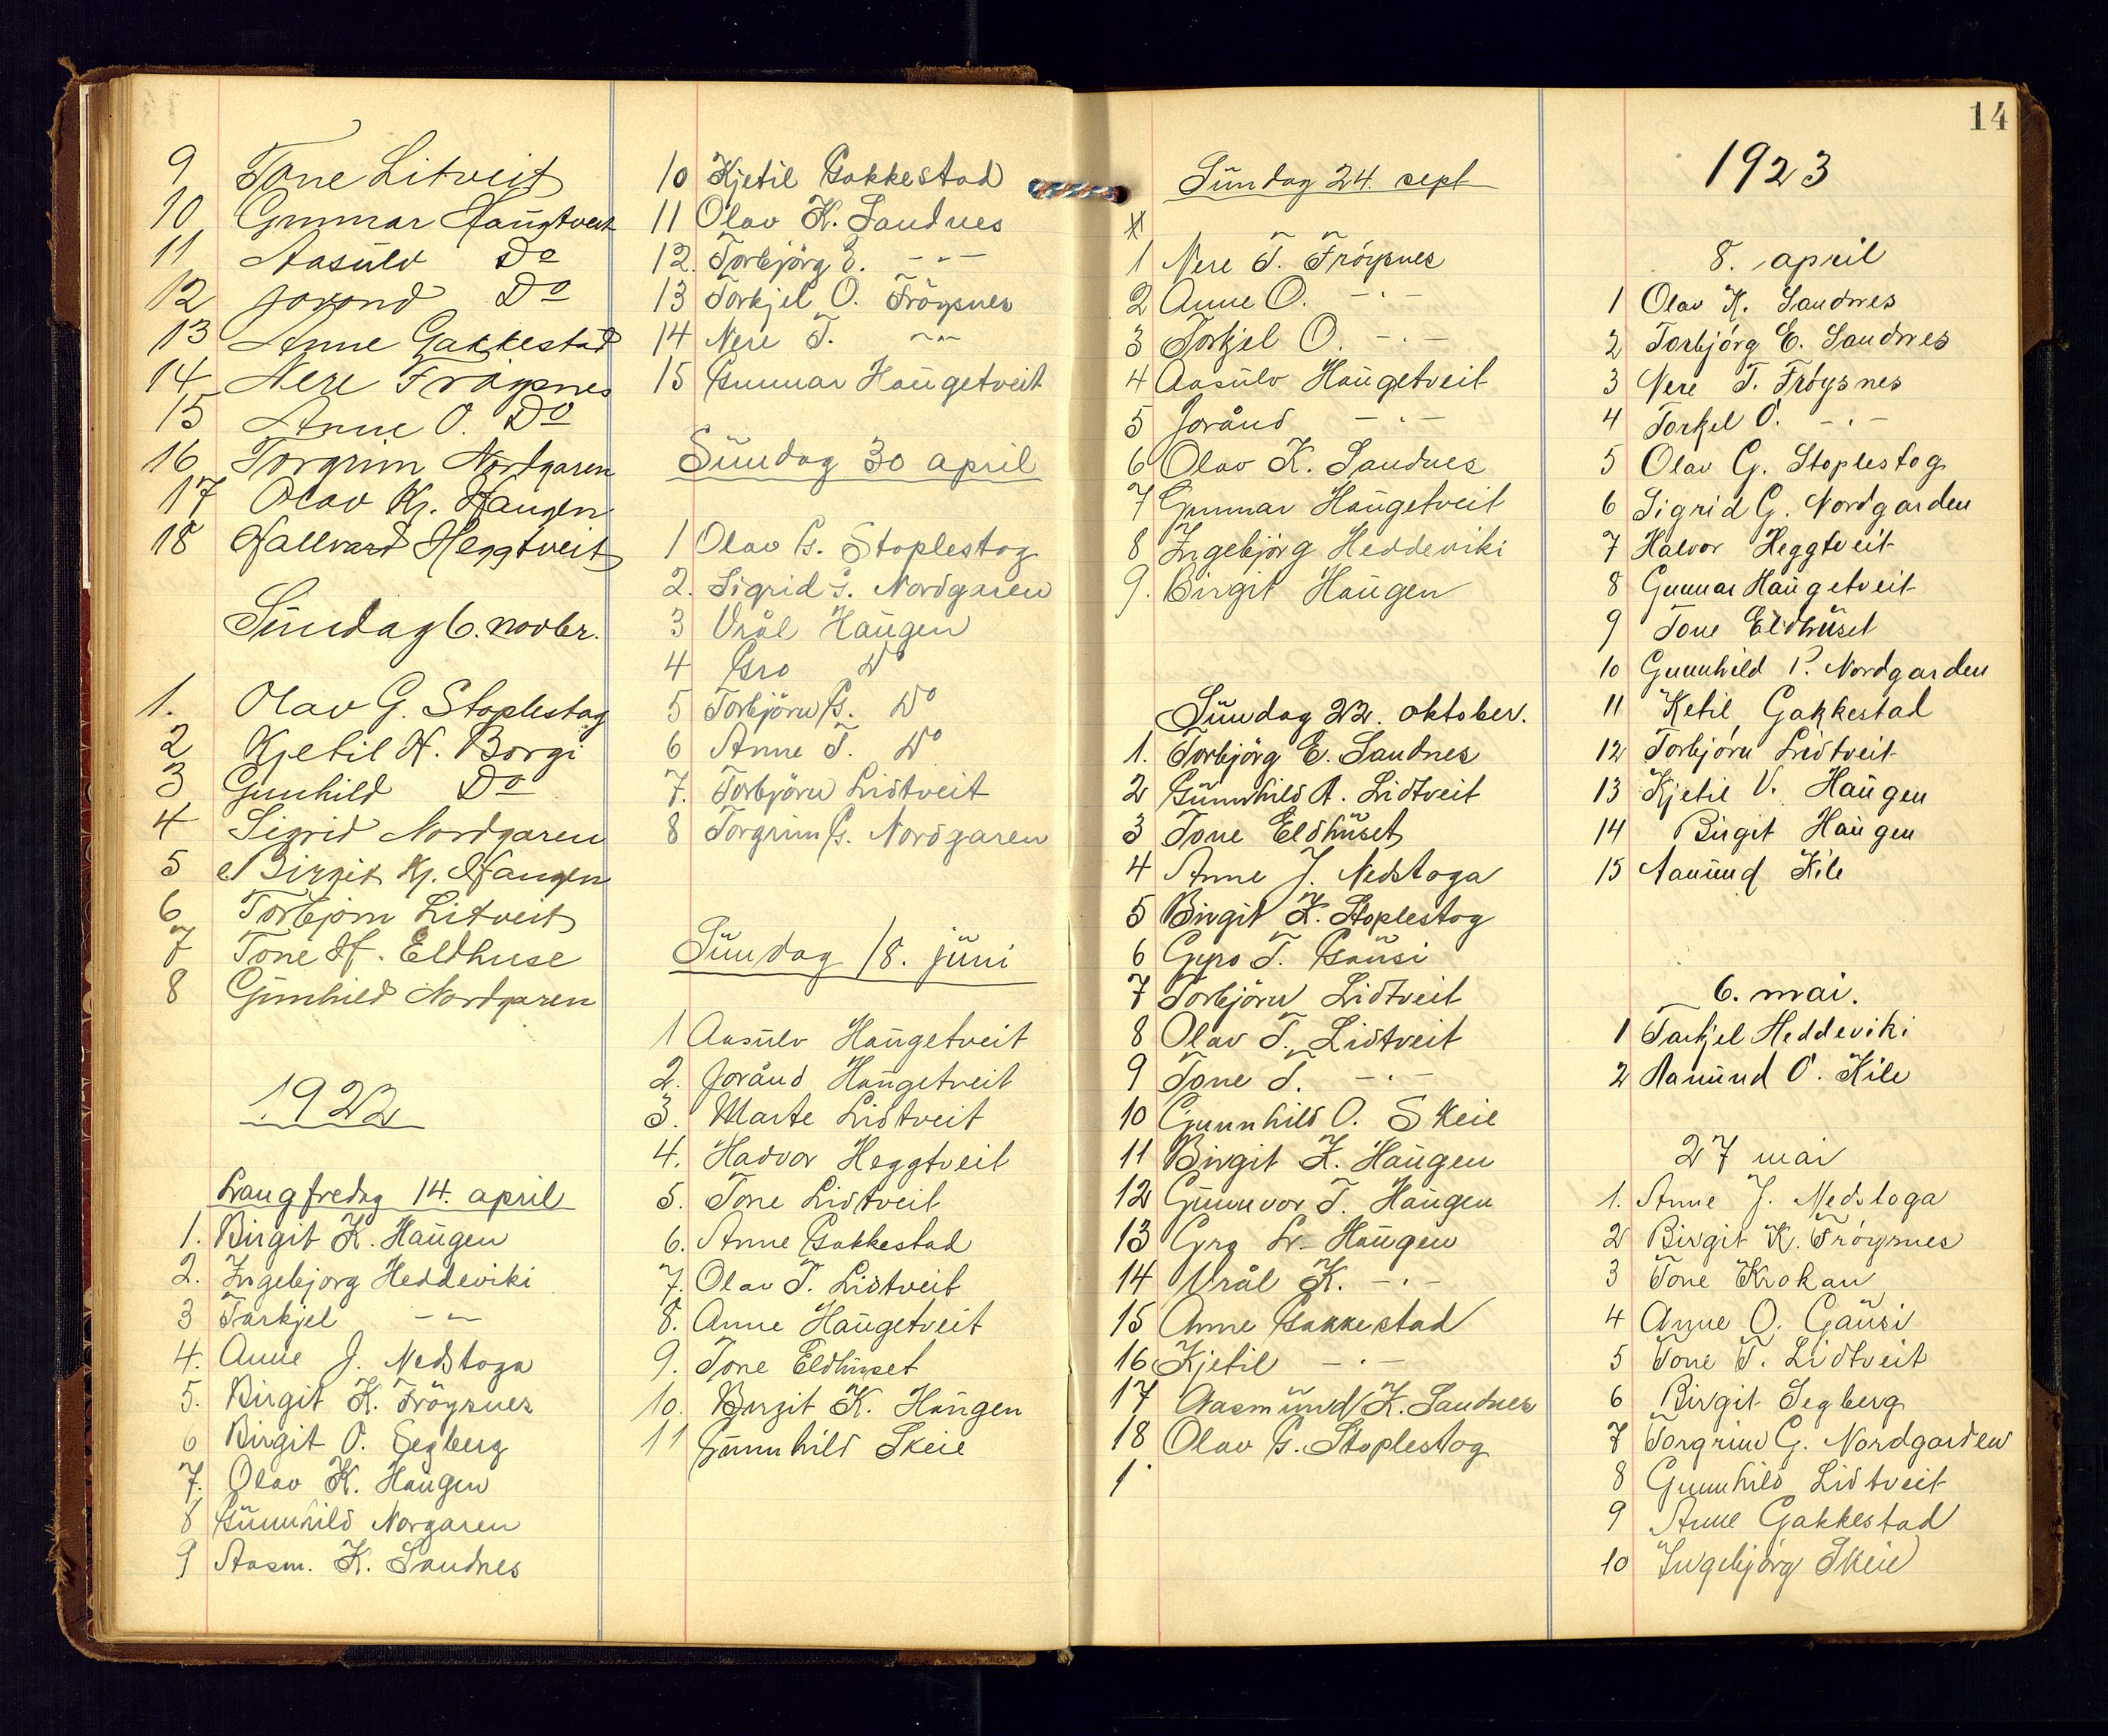 9 Tone Litveit
10 Gunnar Haugtveit
11 Aasulv Do
12 Jorond Do
13 Anne Gakkestad
14 Nere Frøysnes
15 Anne O. Do
16 Torgrim Nordgaren
17 Olav Kj. Haugen
18 Hallvard Heggtveit
Sundag 6. novbr.
1. Olav G. Stoplestog
2 Kjetil H. Borgi
3 Gunhild Do
4 Sigrid Nordgaren
5 Birgit Kj. Haugen
6 Torbjørn Litveit
7 Tone H. Eldhuse
8 Gunhild Nordgaren
1922
Langfredag 14. april
1. Birgit K. Haugen
2. Ingebjorg Heddeviki
3 Tarkjel - " -
4. Anne J. Nedstoga
5. Birgit K. Frøysnes
6 Birgit O. Segberg
7. Olav K. Haugen
8 Gunnhild Norgaren
9 Aasm. K. Sandnes
10 Kjetil Gakkestad
11 Olav K. Sandnes
12. Torbjörg E. - " -
13 Torkjel O. Fröysnes
14 Nere T. - " -
15 Gunnar Haugetveit
Sundag 30 april
1 Olav G. Stoplestog
2. Sigrid G. Nordgaren
3 Vrål Haugen
4 Gro Do
5 Torbjörn G. Do
6 Anne T. Do
7. Torbjörn Lidtveit
8 Torgrim G. Nordgaren
Sundag 18. juni
1 Aasulv Haugetveit
2. Joränd Haugetveit
3. Marte Lidtveit
4. Hadvor Heggtveit
5. Tone Lidtveit
6. Anne Gakkestad
7. Olav T. Lidtveit
8. Anne Haugetveit
9. Tone Eldhuset
10. Birgit K. Haugen
11 Gunnhild Skeie
Sundag 24. sept
1 Nere T. Fröysnes
2 Anne O. - " -
3 Torkjel O. - " -
4 Aasulv Haugetveit
5 Jorånd - " -
6 Olav K. Sandnes
7 Gunnar Haugetveit
8 Ingebjörg Heddeviki
9. Birgit Haugen
Sundag 22. oktober.
1. Torbjörg E. Sandnes
2 Gunnhild A. Lidtveit
3 Tone Eldhuset
4 Anne J. Nedstoga
5 Birgit K. Stoplestog
6 Gyro T. Gausi
7 Torbjörn Lidtveit
8 Olav T. Lidtveit
9 Tone T. - " -
10 Gunnhild O. Skeie
11 Birgit K. Haugen
12 Gunnvor T. Haugen
13 Gro L. Haugen
14 Vrål K. - " -
15 Anne Gakkestad
16 Kjetil - " -
17 Aasmund K. Sandnes
18 Olav G. Stoplestog
1
14
1923
8. april
1 Olav K. Sandnes
2 Torbjórg E. Sandnes
3 Nere T. Fróysnes
4 Torkel O. - " -
5 Olav G. Stoplestog
6 Sigrid G. Nordgarden
7 Halvor Heggtveit
8 Gunnar Haugetveit
9 Tone Eldhuset
10 Gunnhild P. Nordgarden
11 Ketil Gakkestad
12 Torbjórn Lidtveit
13 Kjetil V. Haugen
14 Birgit Haugen
15 Aamund Kile
6. mai.
1 Tarkjel Heddeviki
2 Aamund O. Kile
27 mai
1. Anne J. Nedstoga
2 Birgit K. Fróysnes
3 Tone Krokan
4 Anne O. Gausi
5 Tone T. Lidtveit
6 Birgit Segberg
7 Torgrim G. Nordgarden
8 Gunnhild Lidtveit
9 Anne Gakkestad
10 Ingebjörg Skeie